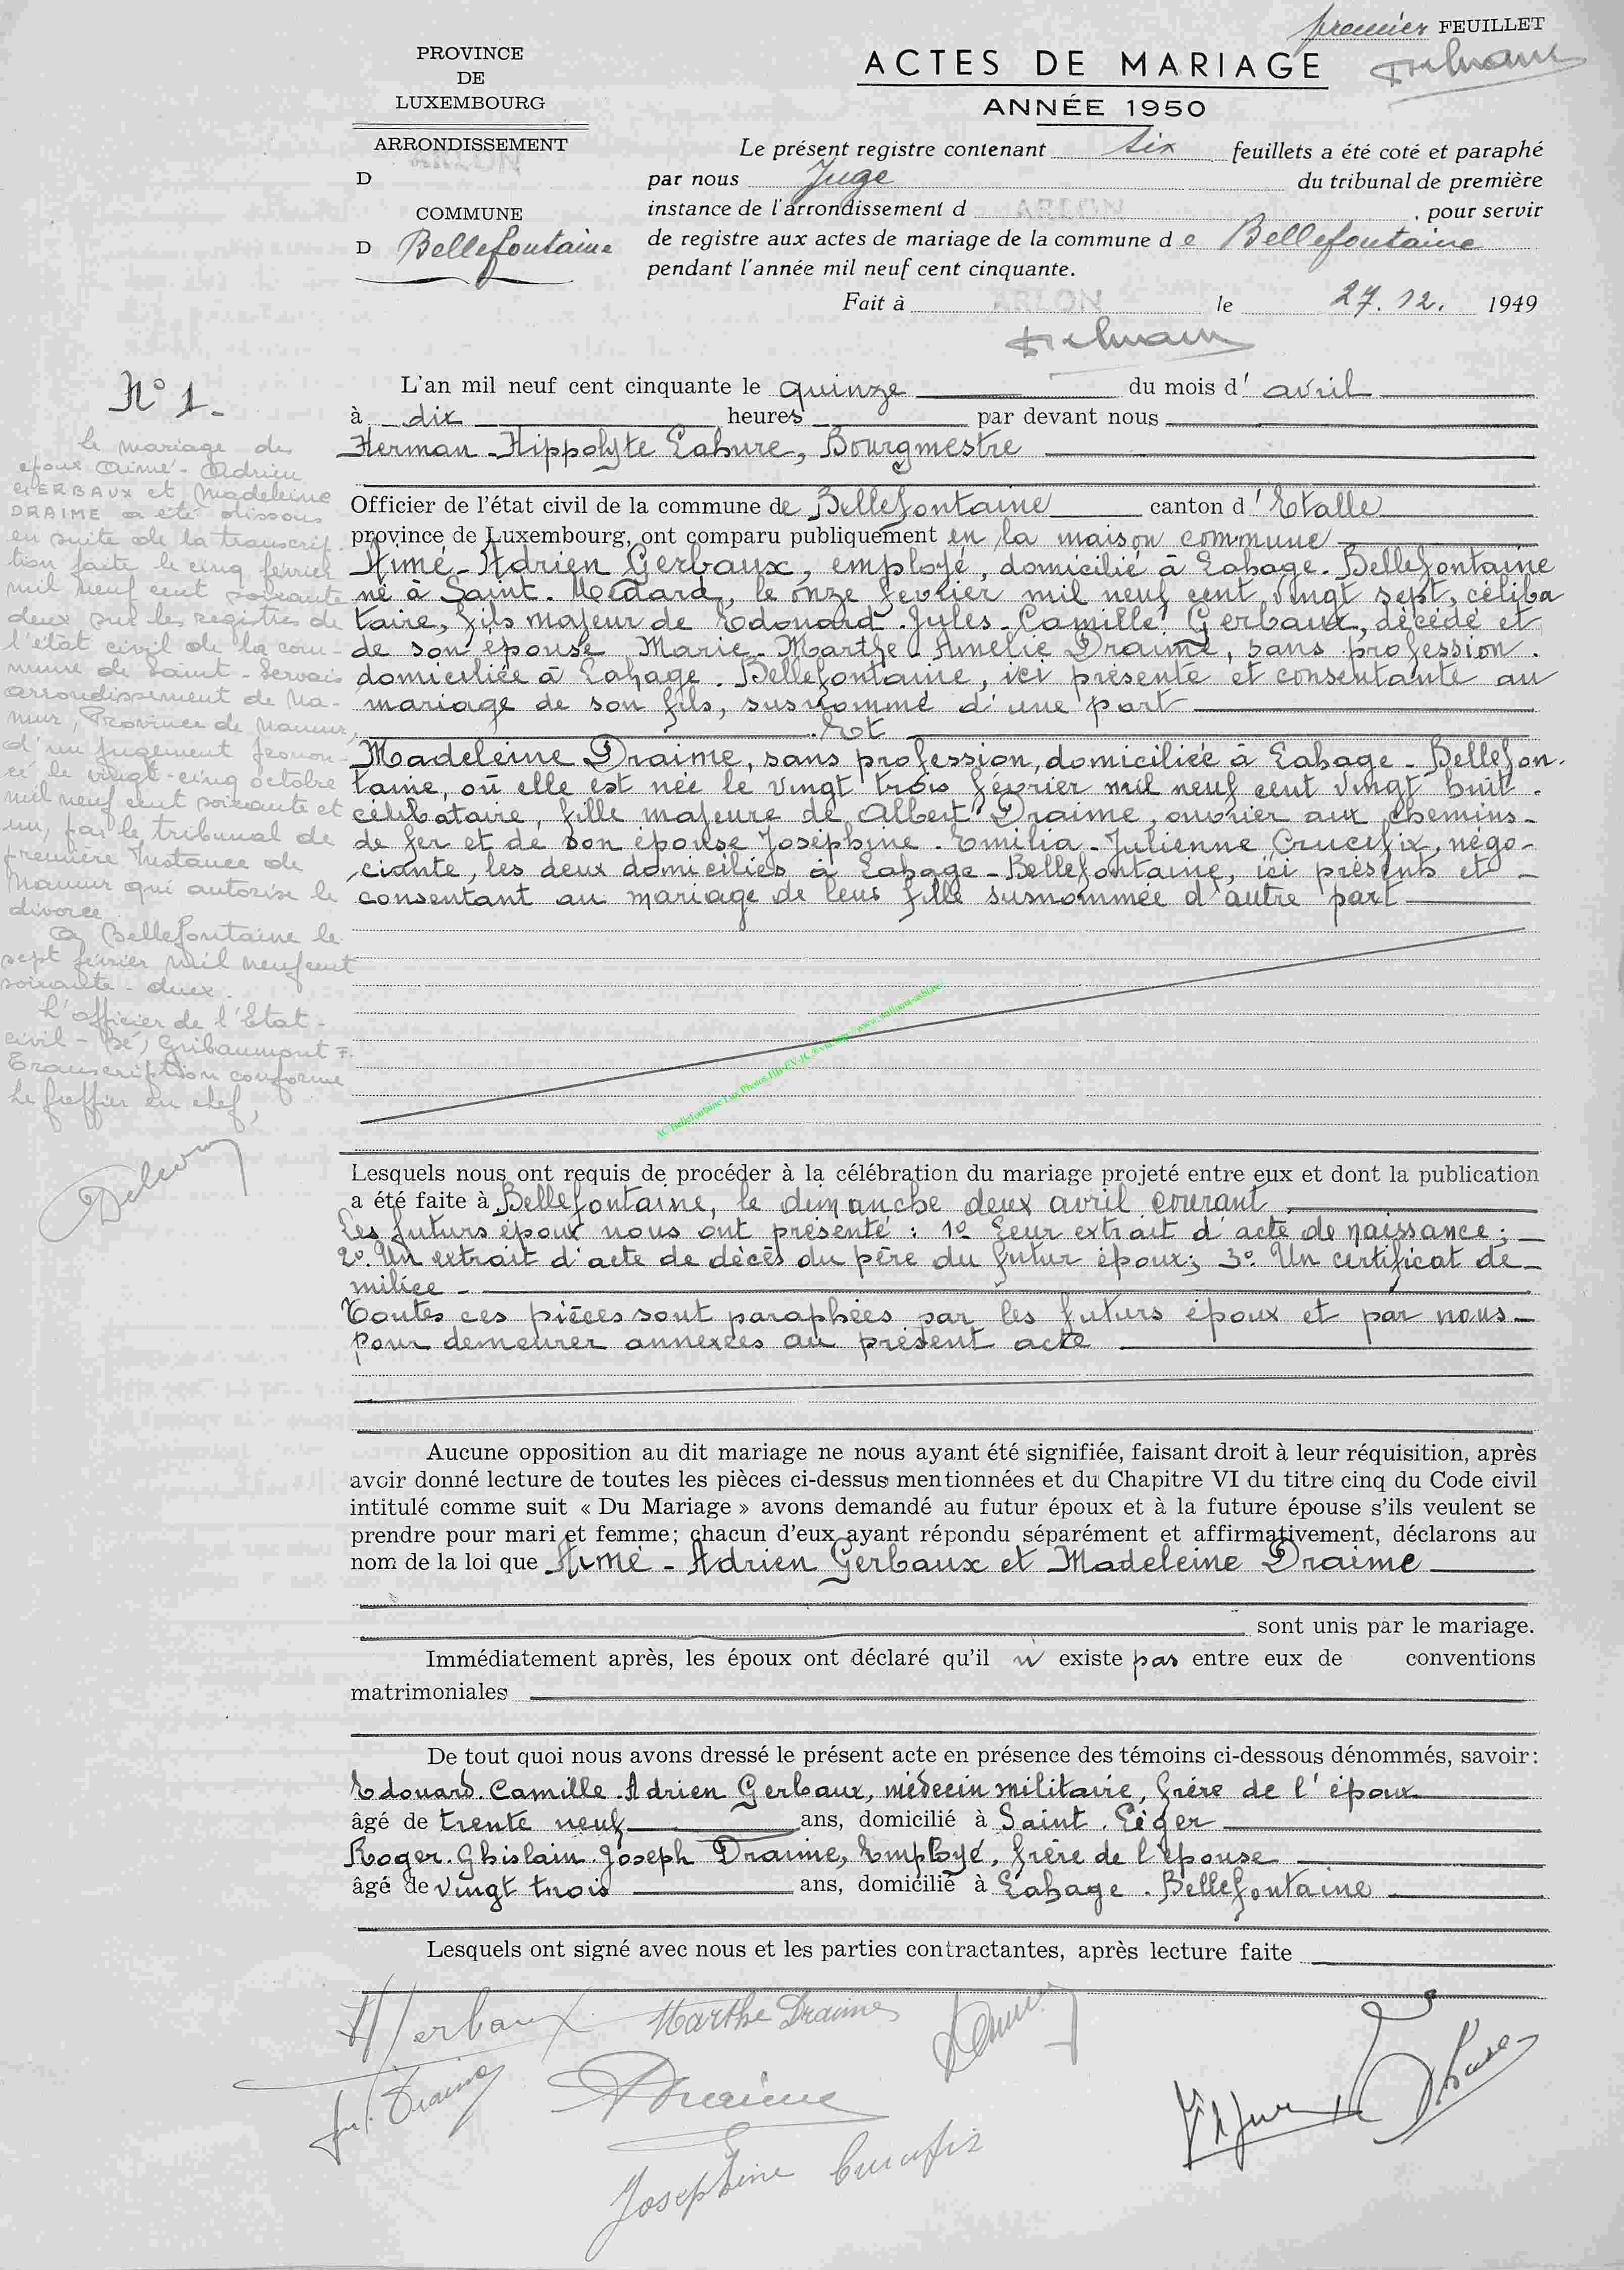 premier FEUILLET
PROVINCE
DE
LUXEMBOURG
ARRONDISSEMENT
ARLON
D
COMMUNE
D Bellefontaine
ACTES DE MARIAGE
ANNÉE 1950
Le présent registre contenant six feuillets a été coté et paraphé
par nous Juge du tribunal de première
instance de l'arrondissement d ARLON , pour servir
de registre aux actes de mariage de la commune d e Bellefontaine
pendant l'année mil neuf cent cinquante.
Fait à ARLON le 27.12. 1949
N° 1-
Le mariage des
époux Aimé-Adrien
GERBAUX et Madeleine
DRAIME a été dissous
en suite de la transcrip-
tion faite le cinq février
mil neuf cent soixante
deux sur les registres de
l'état civil de la com-
mune de Saint-Servais
arrondissement de Na-
mur, Province de Namur,
d'un jugement pronon-
cé le vingt-cinq octobre
mil neuf cent soixante et
un, par le tribunal de
première Instance de
Namur qui autorise le
divorce.
A Bellefontaine le
sept février mil neuf cent
soixante-deux.
L'officier de l'Etat-
civil - Sé, Gribaumont F.
Transcription conforme
Le greffier en chef,
L'an mil neuf cent cinquante le quinze du mois d' avril
à dix heures par devant nous
Herman-Hippolyte Lahure, Bourgmestre
Officier de l'état civil de la commune de Bellefontaine canton d' Etalle
province de Luxembourg, ont comparu publiquement en la maison commune
Aimé-Adrien Gerbaux, employé, domicilié à Lahage-Bellefontaine
né à Saint-Médard, le onze février mil neuf cent vingt sept, céliba
taire, fils majeur de Edouard-Jules-Camille Gerbaux, décédé et
de son épouse Marie-Marthe-Amélie Draime, sans profession.
domiciliée à Lahage-Bellefontaine, ici présente et consentante au
mariage de son fils, susnommé d'une part
Et
Madeleine Draime, sans profession, domiciliée à Lahage-Bellefon-
taine, où elle est née le vingt trois février mil neuf cent vingt huit.
célibataire, fille majeure de Albert Draime, ouvrier aux chemins-
de fer et de son épouse Joséphine-Emilia-Julienne Crucifix, négo-
ciante, les deux domiciliés à Lahage-Bellefontaine, ici présents et
consentant au mariage de leur fille susnommée d'autre part
Lesquels nous ont requis de procéder à la célébration du mariage projeté entre eux et dont la publication
a été faite à Bellefontaine, le dimanche deux avril courant.
Les futurs époux nous ont présenté : 1° Leur extrait d'acte de naissance;
2° Un extrait d'acte de décès du père du futur époux; 3° Un certificat de
milice -
Toutes ces pièces sont paraphées par les futurs époux et par nous
pour demeurer annexées au présent acte
Aucune opposition au dit mariage ne nous ayant été signifiée, faisant droit à leur réquisition, après
avoir donné lecture de toutes les pièces ci-dessus mentionnées et du Chapitre VI du titre cinq du Code civil
intitulé comme suit « Du Mariage » avons demandé au futur époux et à la future épouse s'ils veulent se
prendre pour mari et femme; chacun d'eux ayant répondu séparément et affirmativement, déclarons au
nom de la loi que Aimé-Adrien Gerbaux et Madeleine Draime
sont unis par le mariage.
Immédiatement après, les époux ont déclaré qu'il n' existe pas entre eux de conventions
matrimoniales
De tout quoi nous avons dressé le présent acte en présence des témoins ci-dessous dénommés, savoir:
Edouard-Camille-Adrien Gerbaux, médecin militaire, frère de l'époux
âgé de trente neuf ans, domicilié à Saint-Léger
Roger-Ghislain-Joseph Draime, Employé, frère de l'épouse
âgé de vingt trois ans, domicilié à Lahage-Bellefontaine
Lesquels ont signé avec nous et les parties contractantes, après lecture faite
Gerbaux Marthe Draime
Draime Draime
Joséphine Crucifix